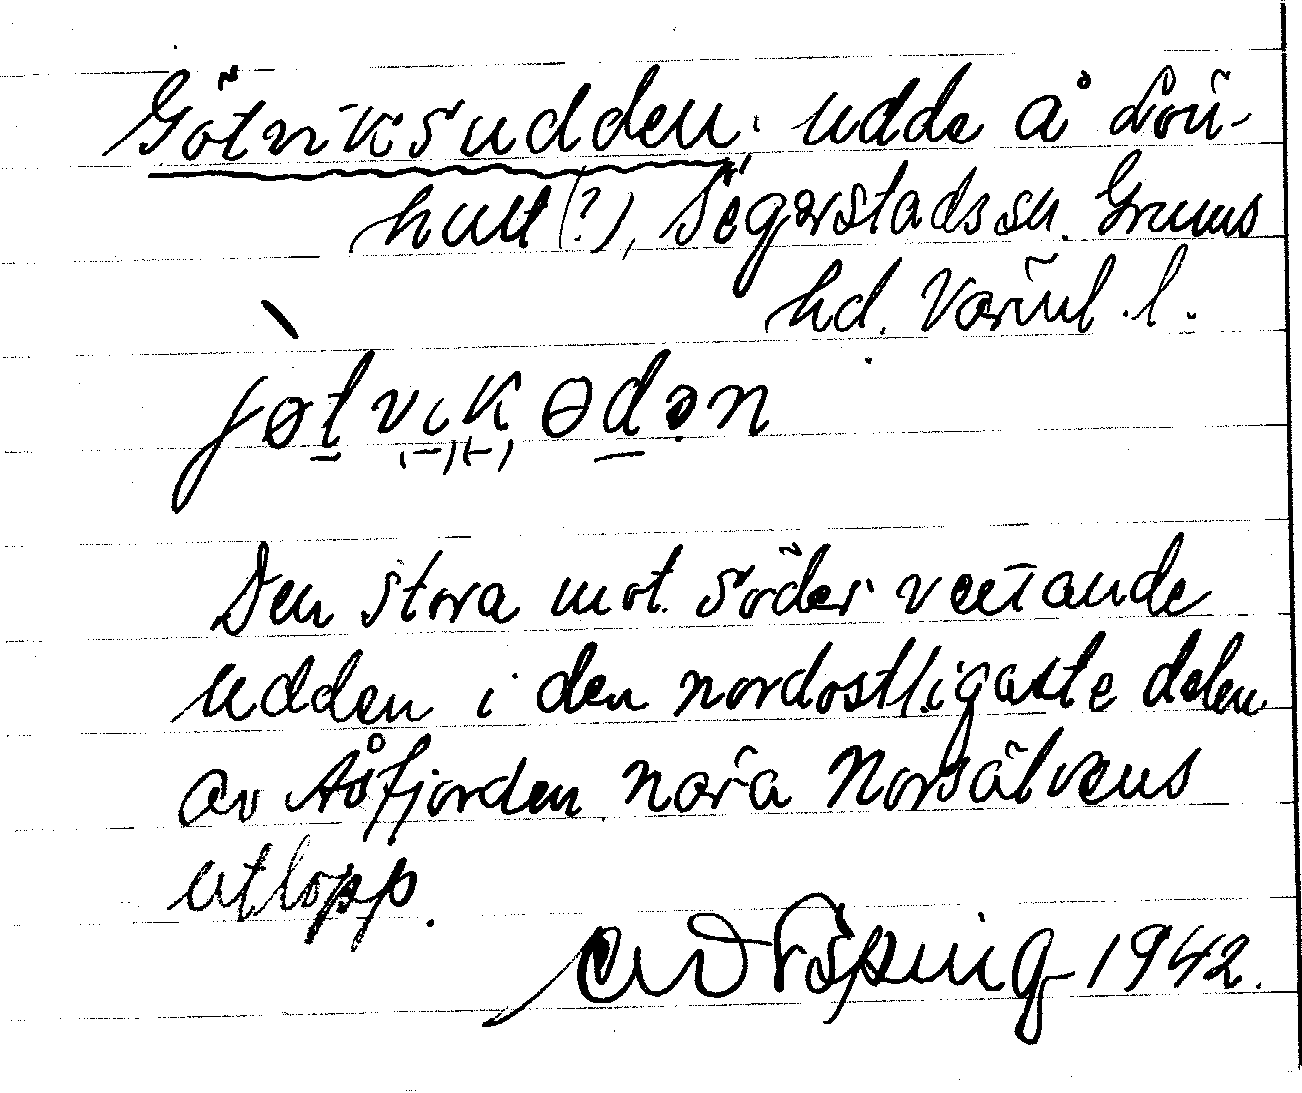 Götviksudden. udde å Lön-
hult (?), Segerstads sn. Grums
hd. Värml. l.
jøtvikədən
Den stora mot söder vettande
udden i den nordostligaste delen
av Åsfjorden nära Norsälvens
utlopp.
1942.